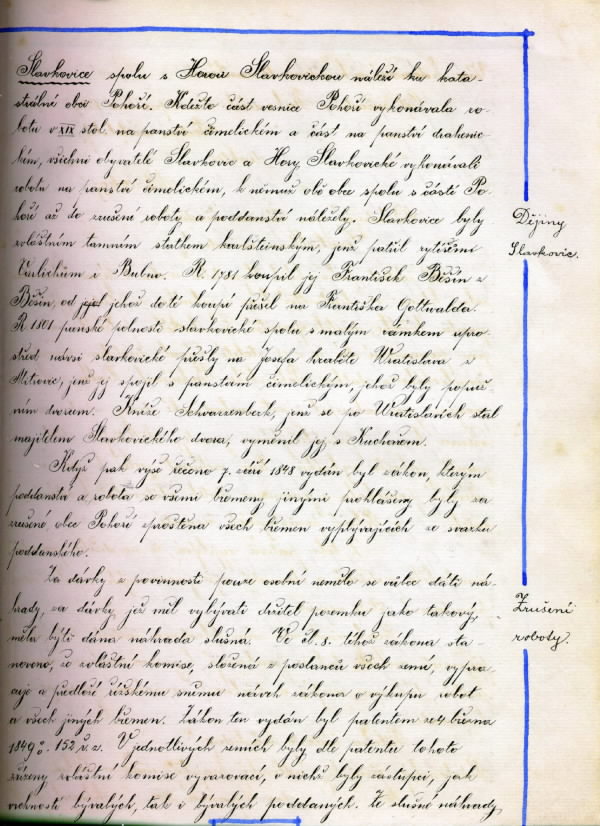 Slavkovice spolu s Horou Slavkovickou náleží ku kata-
strálné obci Pohoří. Kdežto část vesnice Pohoří vykonávala ro-
botu v XIX stol. na panství čimelickém a část na panství drahenic-
kém, všichni obyvatelé Slavkovic a Hory Slavkovické vykonávali
robotu na panství čimelickém, k němuž obě obce spolu s částí Po-
hoří až do zrušení roboty a poddanství náležely. Slavkovice byly
zvláštním tamním statkem karlšteinským, jenž patřil rytířům
Údlickům z Bubna. R. 1781 koupil jej František Běšin z
Běšin, od jehož dětí koupí přišel na Františka Gottwalda.
R 1801 panské polnosti slavkovické spolu s malým zámkem upro-
střed návsi slavkovické přešly na Josefa hraběte Wratislava z
Mitrovic, jenž jej spojil s panstvím čimelickým, jehož byly popluž-
ním dvorem. Kníže Schwarzenberk, jenž se po Wratislavích stal
majitelem Slavkovického dvora, vyměnil jej s Kuchařem.
Když pak výše řečeno 7. září 1848 vydán byl zákon, kterým
poddanství a robota se všemi břemeny jinými prohlášeny byly za
zrušené obec Pohoří zproštěna všech břemen vyplývajících ze svazku
poddanského.
Za dávky z povinnosti pouze osobní nemělo se vůbec dáti ná-
hrady, za dávky, jež měl vybývati držitel pozemku jako takový,
měla býti dána náhrada slušná. Ve čl. 8. téhož zákona sta-
noveno, že zvláštní komise, složená z poslanců všech zemí, vypra-
cuje a předloží říšskému sněmu návrh zákona o výkupu robot
a všech jiných břemen. Zákon ten vydán byl patentem ze 4 března
1849 č. 152 ř. z. V jednotlivých zemích byly dle patentu tohoto
zřízeny zvláštní komise vyvazovací, v nichž byly zástupci, jak
vrchností bývalých, tak i bývalých poddaných. Ze slušné náhrady,
Dějiny
Slavkovic.
Zrušení
roboty.